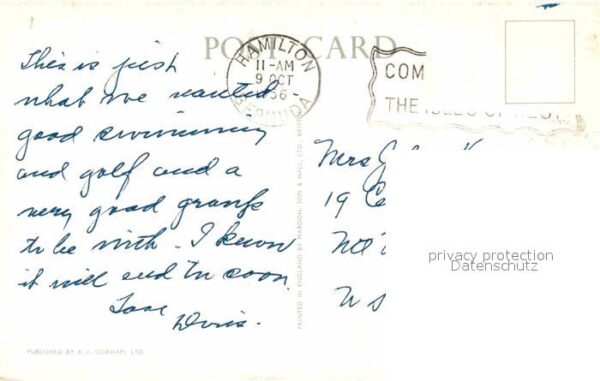 POST CARD
HAMILTON
11-AM
9 OCT
56
BERMUDA
COM
THE ISLES OF REST
This is just
what we wanted -
good swimming
and golf and a
very good group
to be with - I know
it will end too soon.
Love
Doris.
Mrs
19
U S
PRINTED IN ENGLAND BY MARDON, SON & HALL, LTD., BRISTOL
PUBLISHED BY A. J. GORHAM, LTD.
privacy protection
Datenschutz